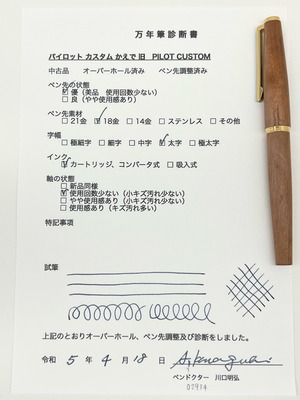 万年筆診断書
パイロット カスタム かえで 旧 PILOT CUSTOM
中古品 オーバーホール済み ペン先調整済み
ペン先の状態
☑優（美品 使用回数少ない）
☐良（やや使用感あり）
ペン先素材
☐21金 ☑18金 ☐14金 ☐ステンレス ☐その他
字幅
☐極細字 ☐細字 ☐中字 ☑太字 ☐極太字
インク
☑カートリッジ、コンバータ式 ☐吸入式
軸の状態
☐新品同様
☑使用回数少ない（小キズ汚れ少ない）
☐やや使用感あり（小キズ汚れ少ない）
☐使用感あり（キズ汚れ多い）
特記事項
試筆
上記のとおりオーバーホール、ペン先調整及び診断をしました。
令和 5 年 4 月 18 日
ペンドクター 川口明弘